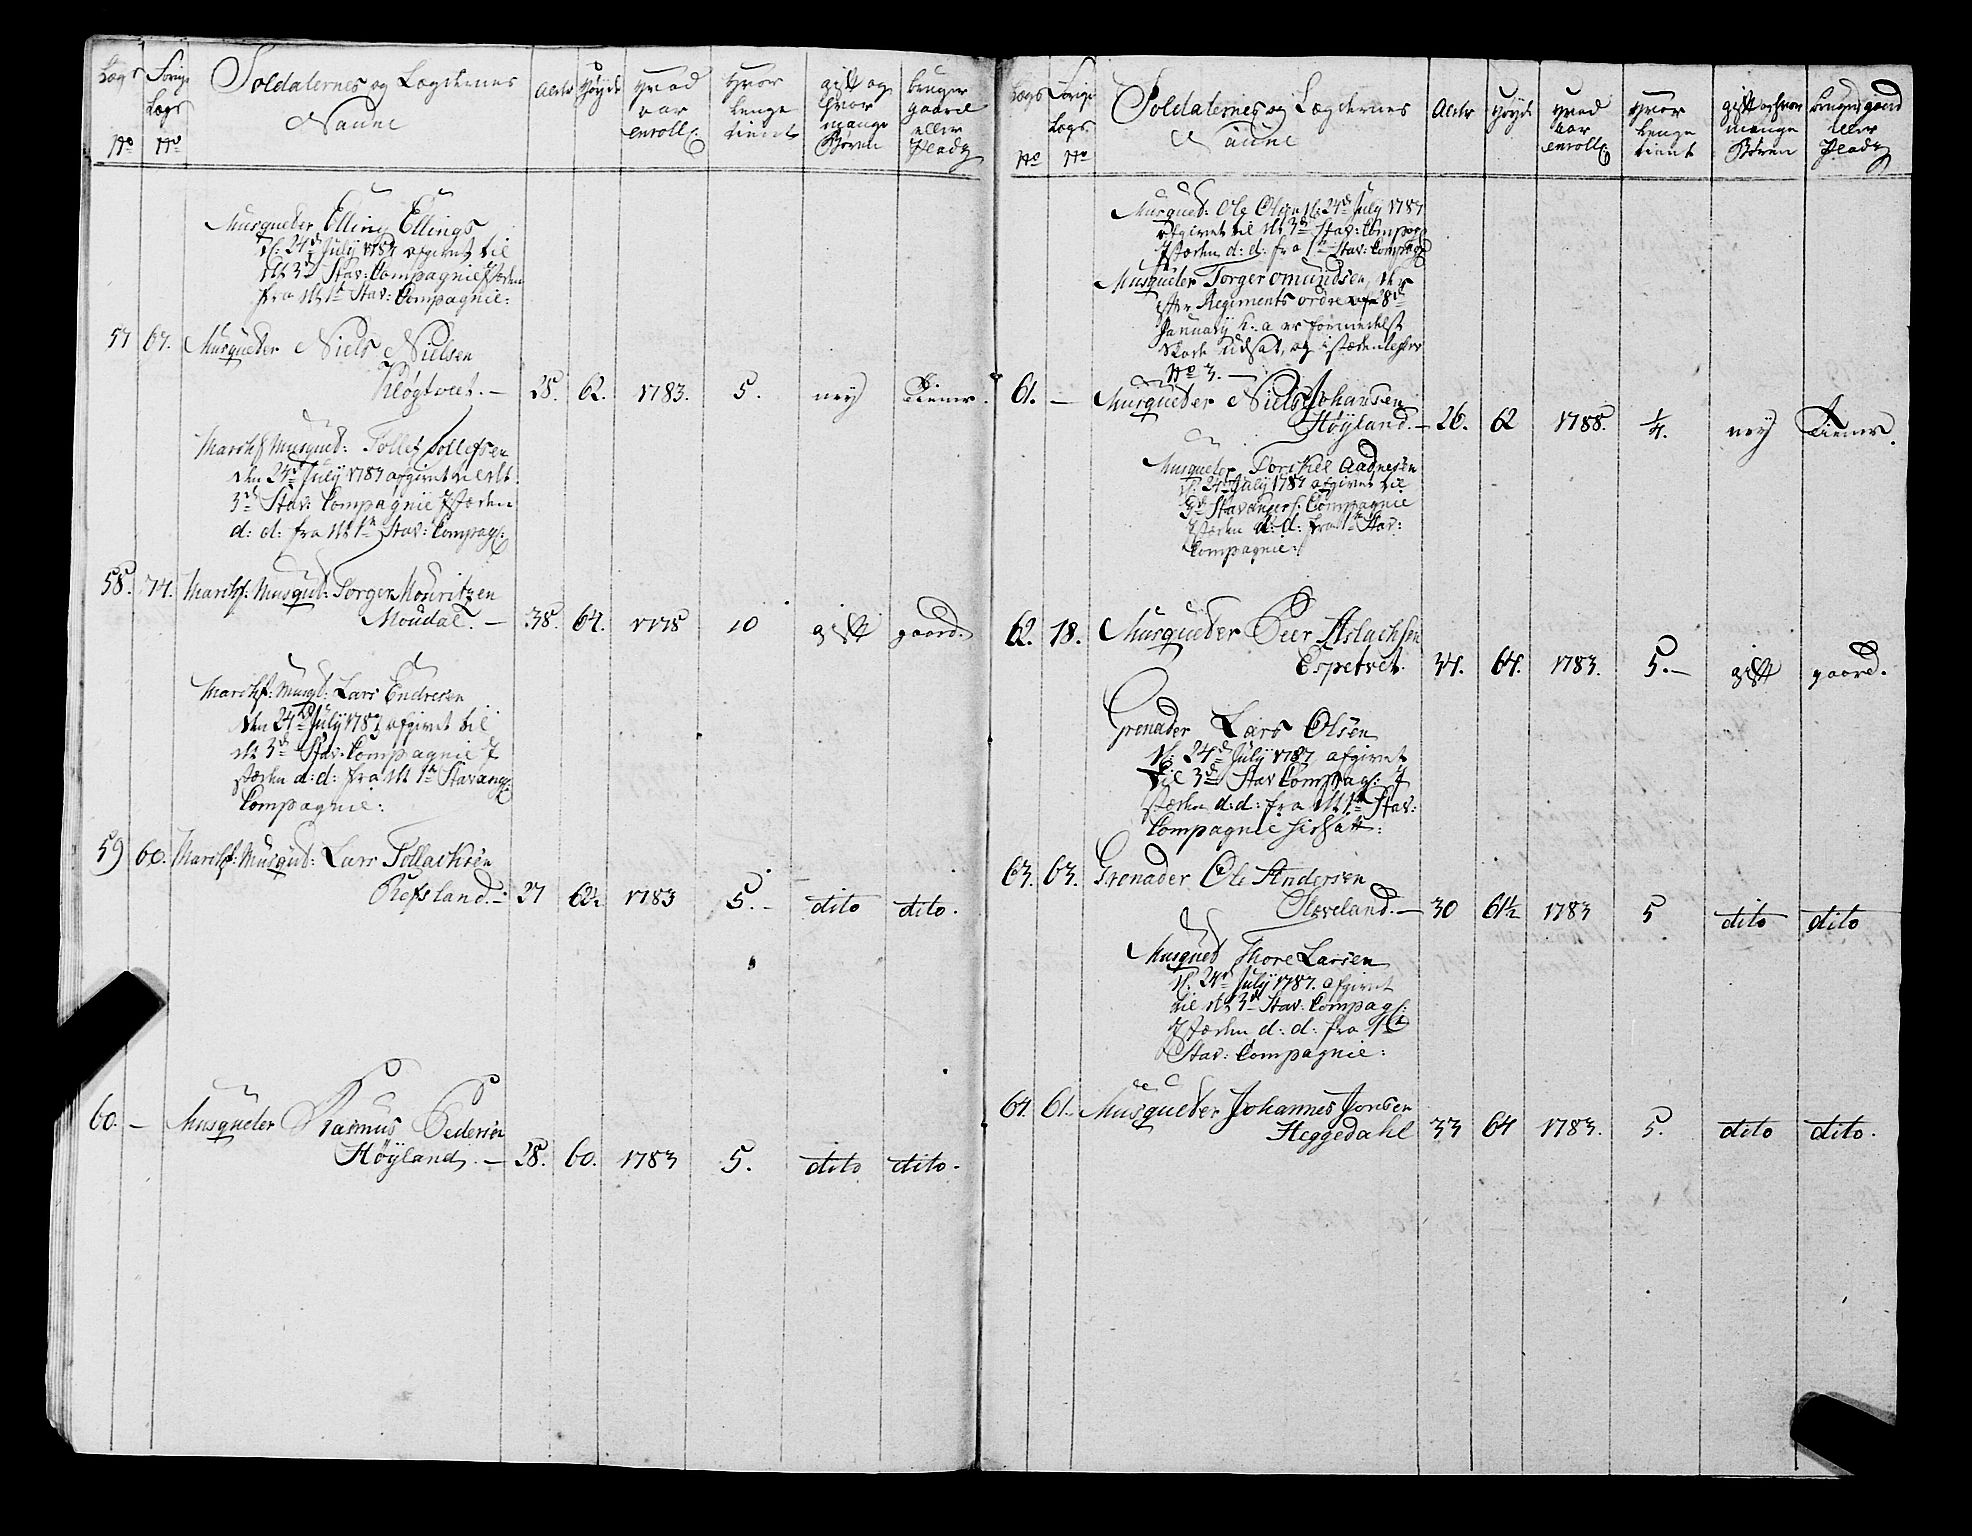 Lægs No
Forige Lægs No
Soldaternes og Lægdernes Naune
Alder
Høyde
Hvad aar enroll:
Hvor lenge tient
gift og hvor mange Børen
bruger gaard eller Pladz
Musqueter Elling Ellings
d: 24de July 1787 afgivet til
det 3de Stav: Compagnie I stæden
fra det 1te Stav: Compagnie:
57 67. Musqueter Niels Nielsen
Kløgtvet. — 28. 62. 1783. 5. ney tiener.
Marchf Musquet: Tollef Tollefsen
den 24de July 1787 afgivet til det
3de Stav: Compagnie I stæden
d: d: fra det 1te Stav: Compag:
58. 74. Marchf: Musqut: Torger Mouritzen
Moudal. — 38. 64. 1778 10 gift gaard.
Marchf: Musqt: Lars Endresen
den 24de July 1787 afgivet til
det 3de Stav: Compagnie I
stæden d: d: fra det 1te Stavang:
Compagnie:
59 60. Marchf: Musqut: Lars Tollachsen
Refsland. — 27 62½ 1783 5. — dito dito.
60. — Musqueter Rasmus Pedersen
Høyland. — 28. 60. 1783 5. dito dito.
Lægs No
Forige Lægs No
Soldaternes og Lægdernes Naune
Alder
Høyde
Hvad aar enroll:
Hvor lenge tient
gift og hvor mange Børen
bruger gaard eller Pladz
Musquet: Ole Olsen d: 24de July 1787
afgivet til det 3de Stav: Compag:
I stæden d: d: fra 1te Stav: Compag:
Musqueter Torger omundsen, der
efter Regiments ordre af 8de
January h: a er formedelst
skade udsat, og i stæden
No 3. —
61. — Musqueter Niels Johansen
Høyland. — 26. 62 1788. ¼. ney tiener.
Musqueter Torchel Aadnesen
d: 24de July 1787 afgivet til
3de Stavangers: Compagnie
I stæden d: d: fra 1te Stav:
Compagnie:
62. 18. Musqueter Peer Aslachsen
Espetvet. 34. 64. 1783. 5. — gift gaard.
Grenader Lars Olsen
d: 24de July 1787 afgivet
til 3de Stav Compag: I
stæden d: d: fra det 1te Stav:
Compagnie
63. 63. Grenader Ole Andersen
Sleveland. — 30 61½ 1783 5 dito dito
Musquet Thore Larsen
d: 24de July 1787. afgivet
til det 3de Stav: Compag:
I stæden d: d: fra 1te
Stav: Compagnie:
64. 61. Musqueter Johannes Jonsen
Heggedahl 33 64 1783. 5. dito dito.